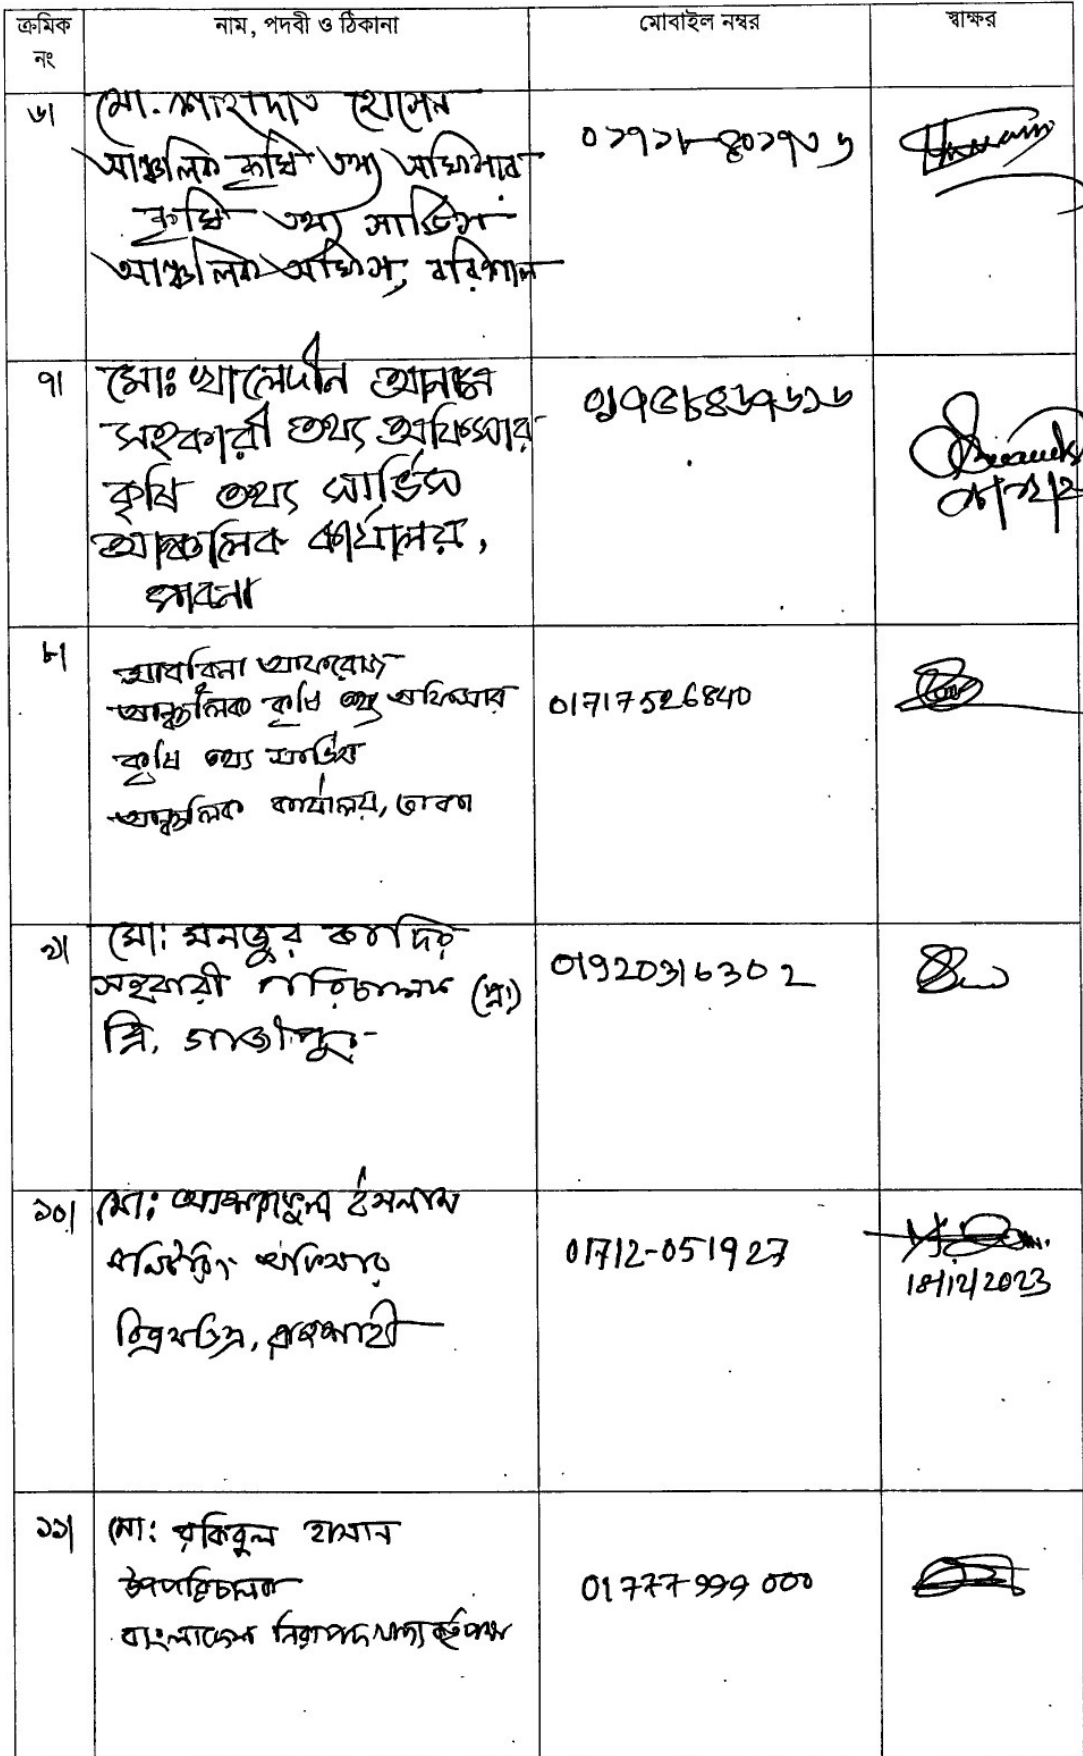 ক্রমিক নং
নাম, পদবী ও ঠিকানা
মোবাইল নম্বর
স্বাক্ষর
৬।
মো. শাহাদাত হোসেন
আঞ্চলিক কৃষি তথ্য অফিসার
কৃষি তথ্য সার্ভিস
আঞ্চলিক অফিস, বরিশাল
৭।
মোঃ
সহকারী তথ্য অফিসার
কৃষি তথ্য সার্ভিস
আঞ্চলিক কার্যালয়,
পাবনা
৮।
আফরোজ
আঞ্চলিক কৃষি তথ্য অফিসার
কৃষি তথ্য সার্ভিস
আঞ্চলিক কার্যালয়, ঢাকা
01717526840
৯।
মো: মনজুর কাদির
সহকারী পরিচালক
গাজীপুর
01920316302
১০।
মো: ইসলাম
মনিটরিং অফিসার
রাজশাহী
01712-051927
18/12/2023
১১।
মো: রকিবুল হাসান
উপপরিচালক
বাংলাদেশ নিরাপদ খাদ্য কর্তৃপক্ষ
01777999000